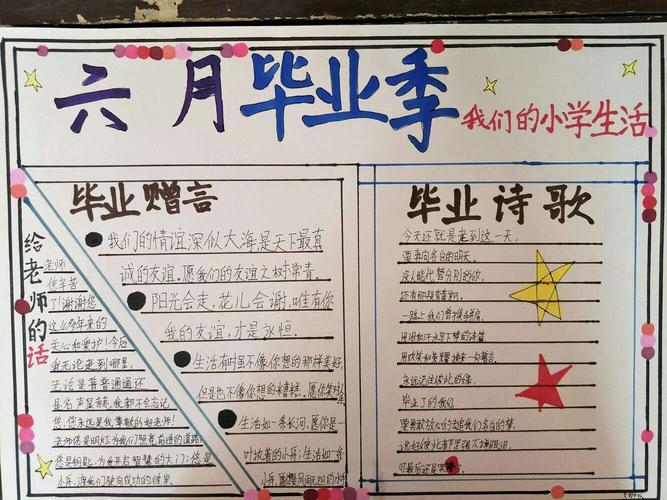 六月毕业季
我们的小学生活
毕业赠言
我们的情谊深似大海是天下最真
诚的友谊.愿我们的友谊之树常青.
阳光会走,花儿会谢,唯有你
我的友谊,才是永恒.
生活有时虽不像你想的那样美好,
但是也不像你想的糟糕。愿你
生活如一条长河,愿你是一
叶执着的小舟;生活如一条
小舟,愿你
给老师的话
老师
您辛苦
了!谢谢您
这么多年来的
关心和爱护!今后
我无论走到哪里,
无论是普普通通还
是名声显赫,我都不会忘记
您,您永远是我尊敬的好老师!
老师您是明灯为我们照亮前进的道路
您是钥匙,为我开启智慧的大门;您是
小舟,渡我们驶向成功的彼岸.
毕业诗歌
今天还就是走到这一天,
要奔向各自的明天,
没人能代替分别的你,
还有那段青春别,
一路上我们曾携手肩,
用泪和汗水写下梦的诗篇
用欢笑和荣耀换来一句誓言,
永远记住彼此的缘,
毕业了的我们
要勇敢放心的追我们各自的梦
说好彼此都坚强不掉眼泪,
可最后还是哭